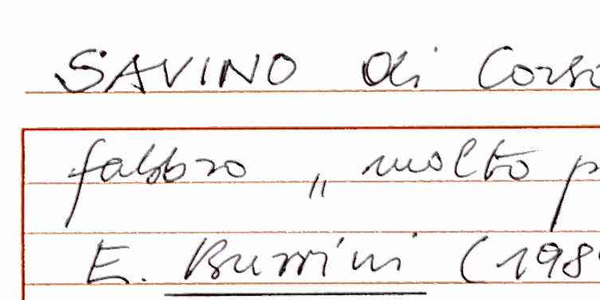 SAVINO di Corso
fabbro „ molto p
E. Burrini (198